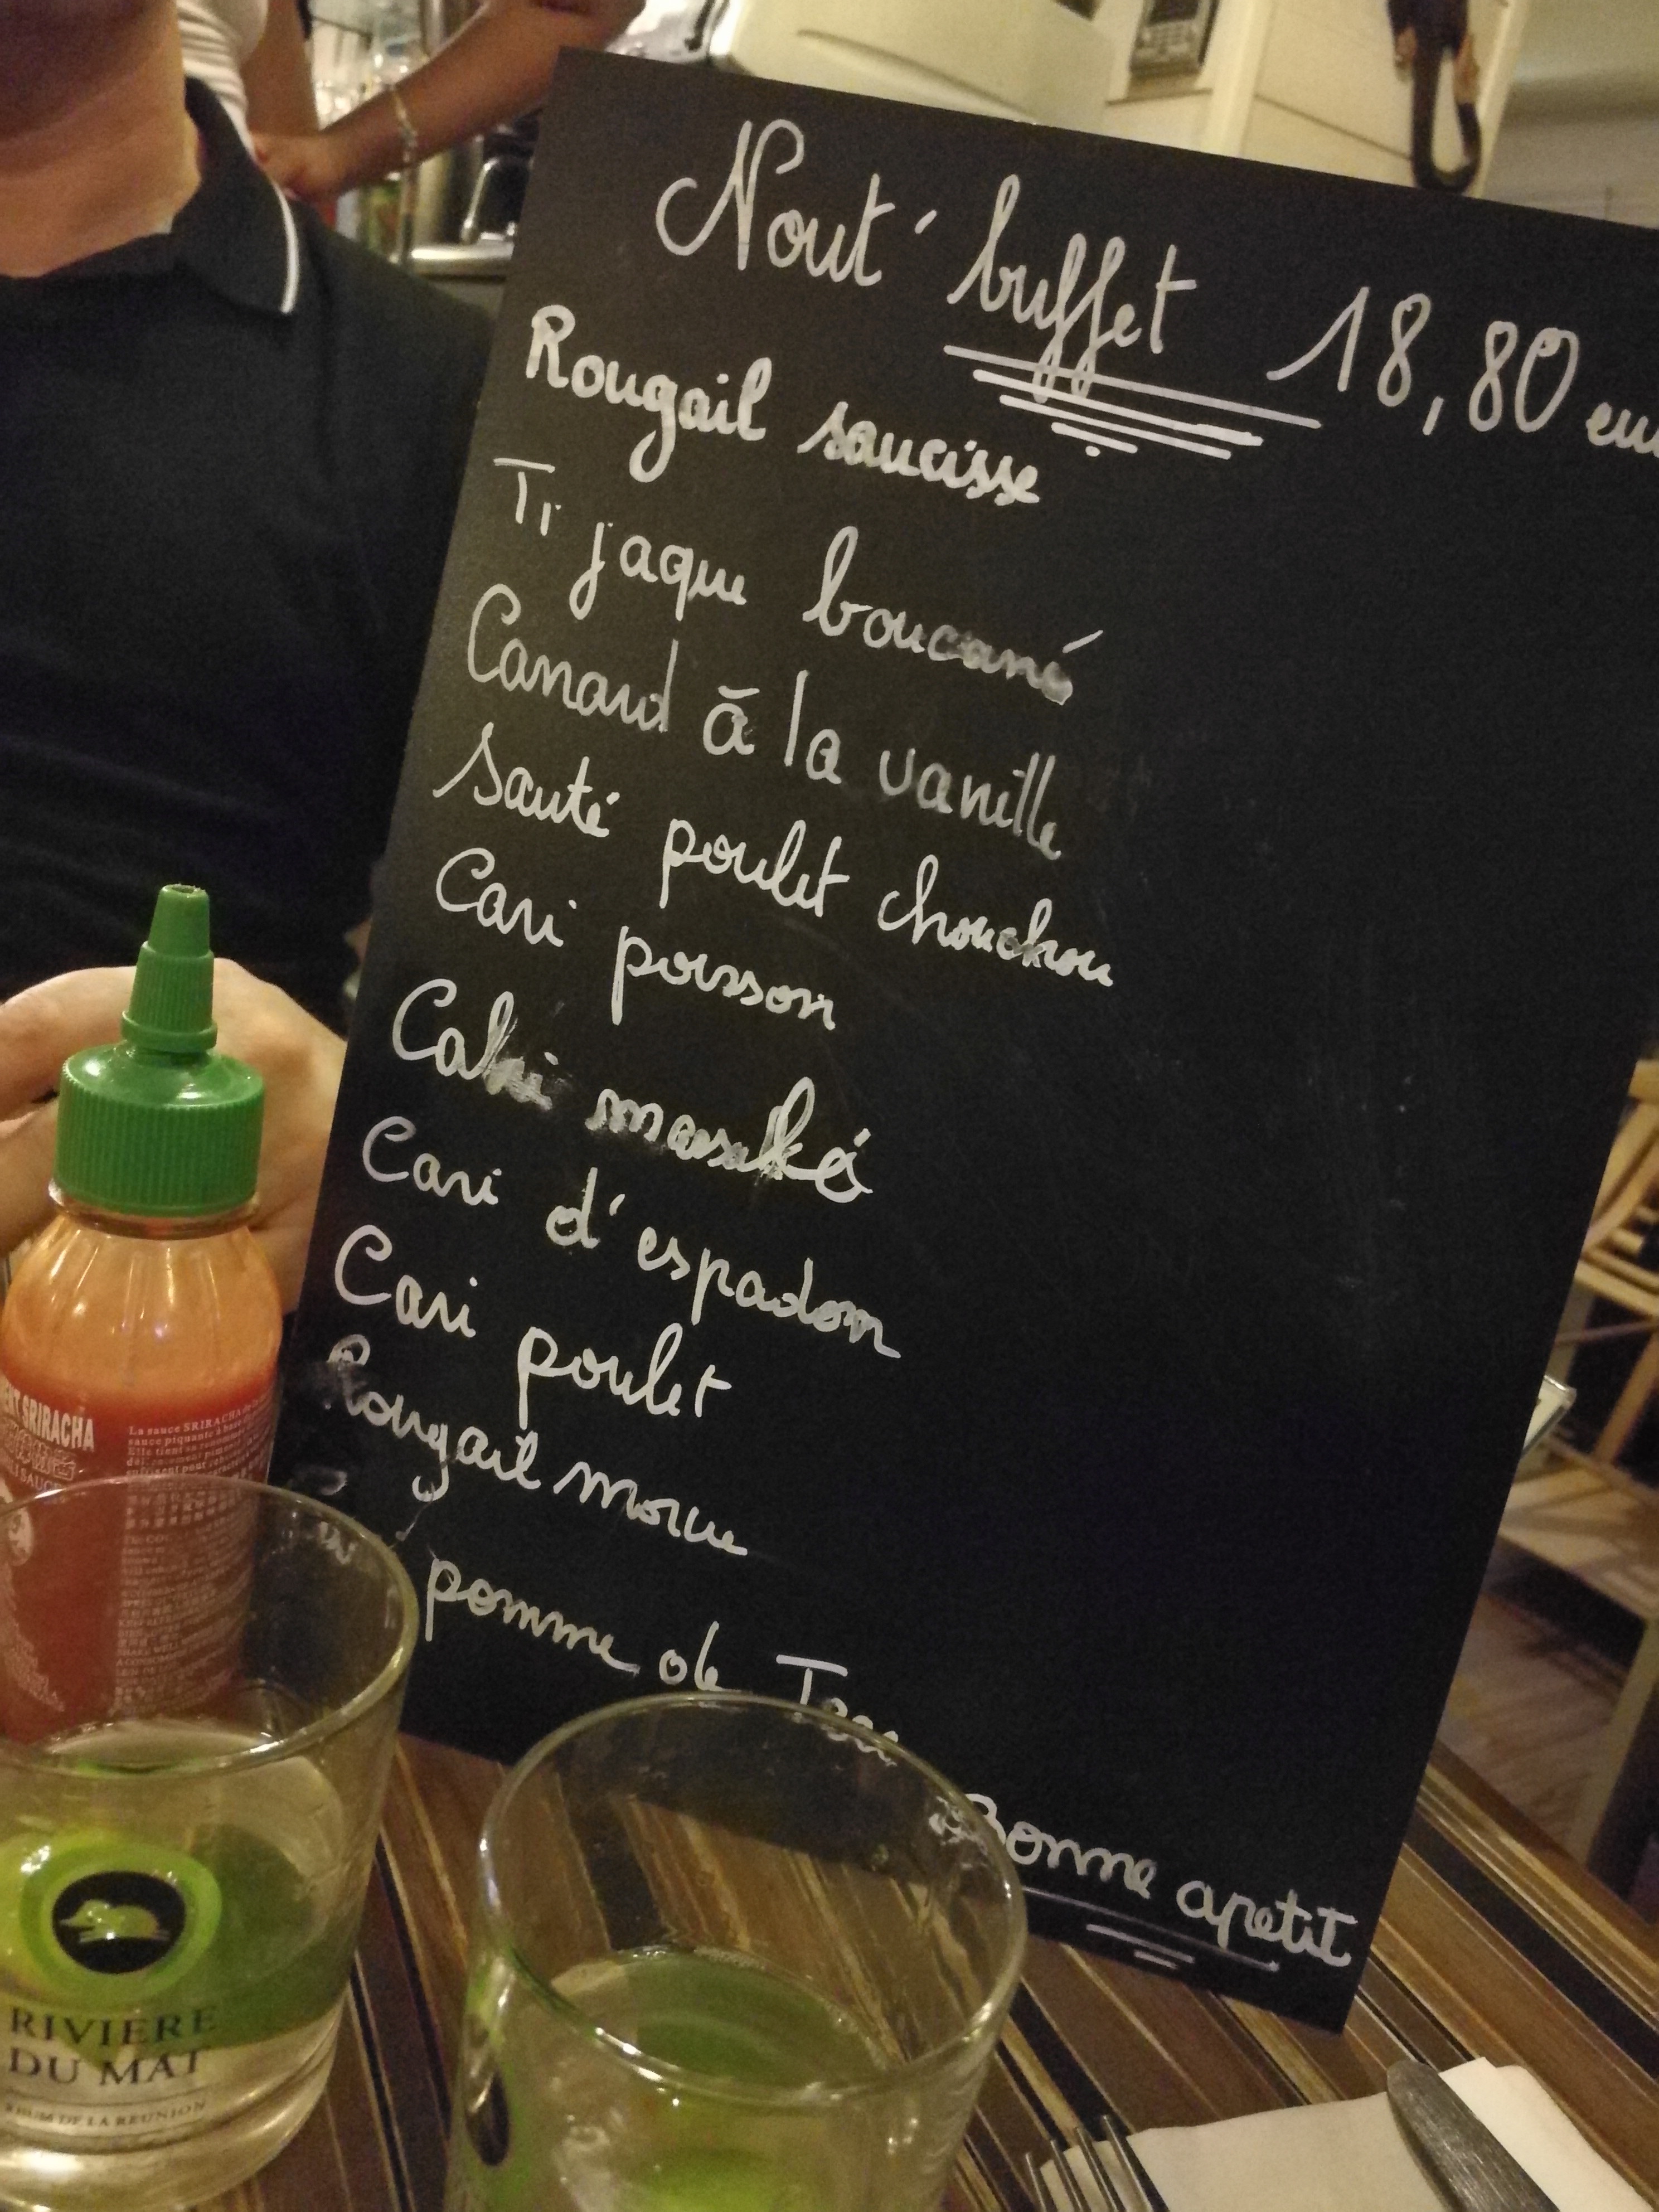 Nout' buffet 18,80 eur
Rougail saucisse
Ti jaque boucané
Canard à la vanille
Sauté poulet chouchou
Cari poisson
Cabri massalé
Cari d'espadon
Cari poulet
Rougail morue
pomme de Ter
Bonne apetit
SRIRACHA
La sauce SRIRACHA
sauce piquante à base
RIVIERE
DU MAT
RHUM DE LA REUNION